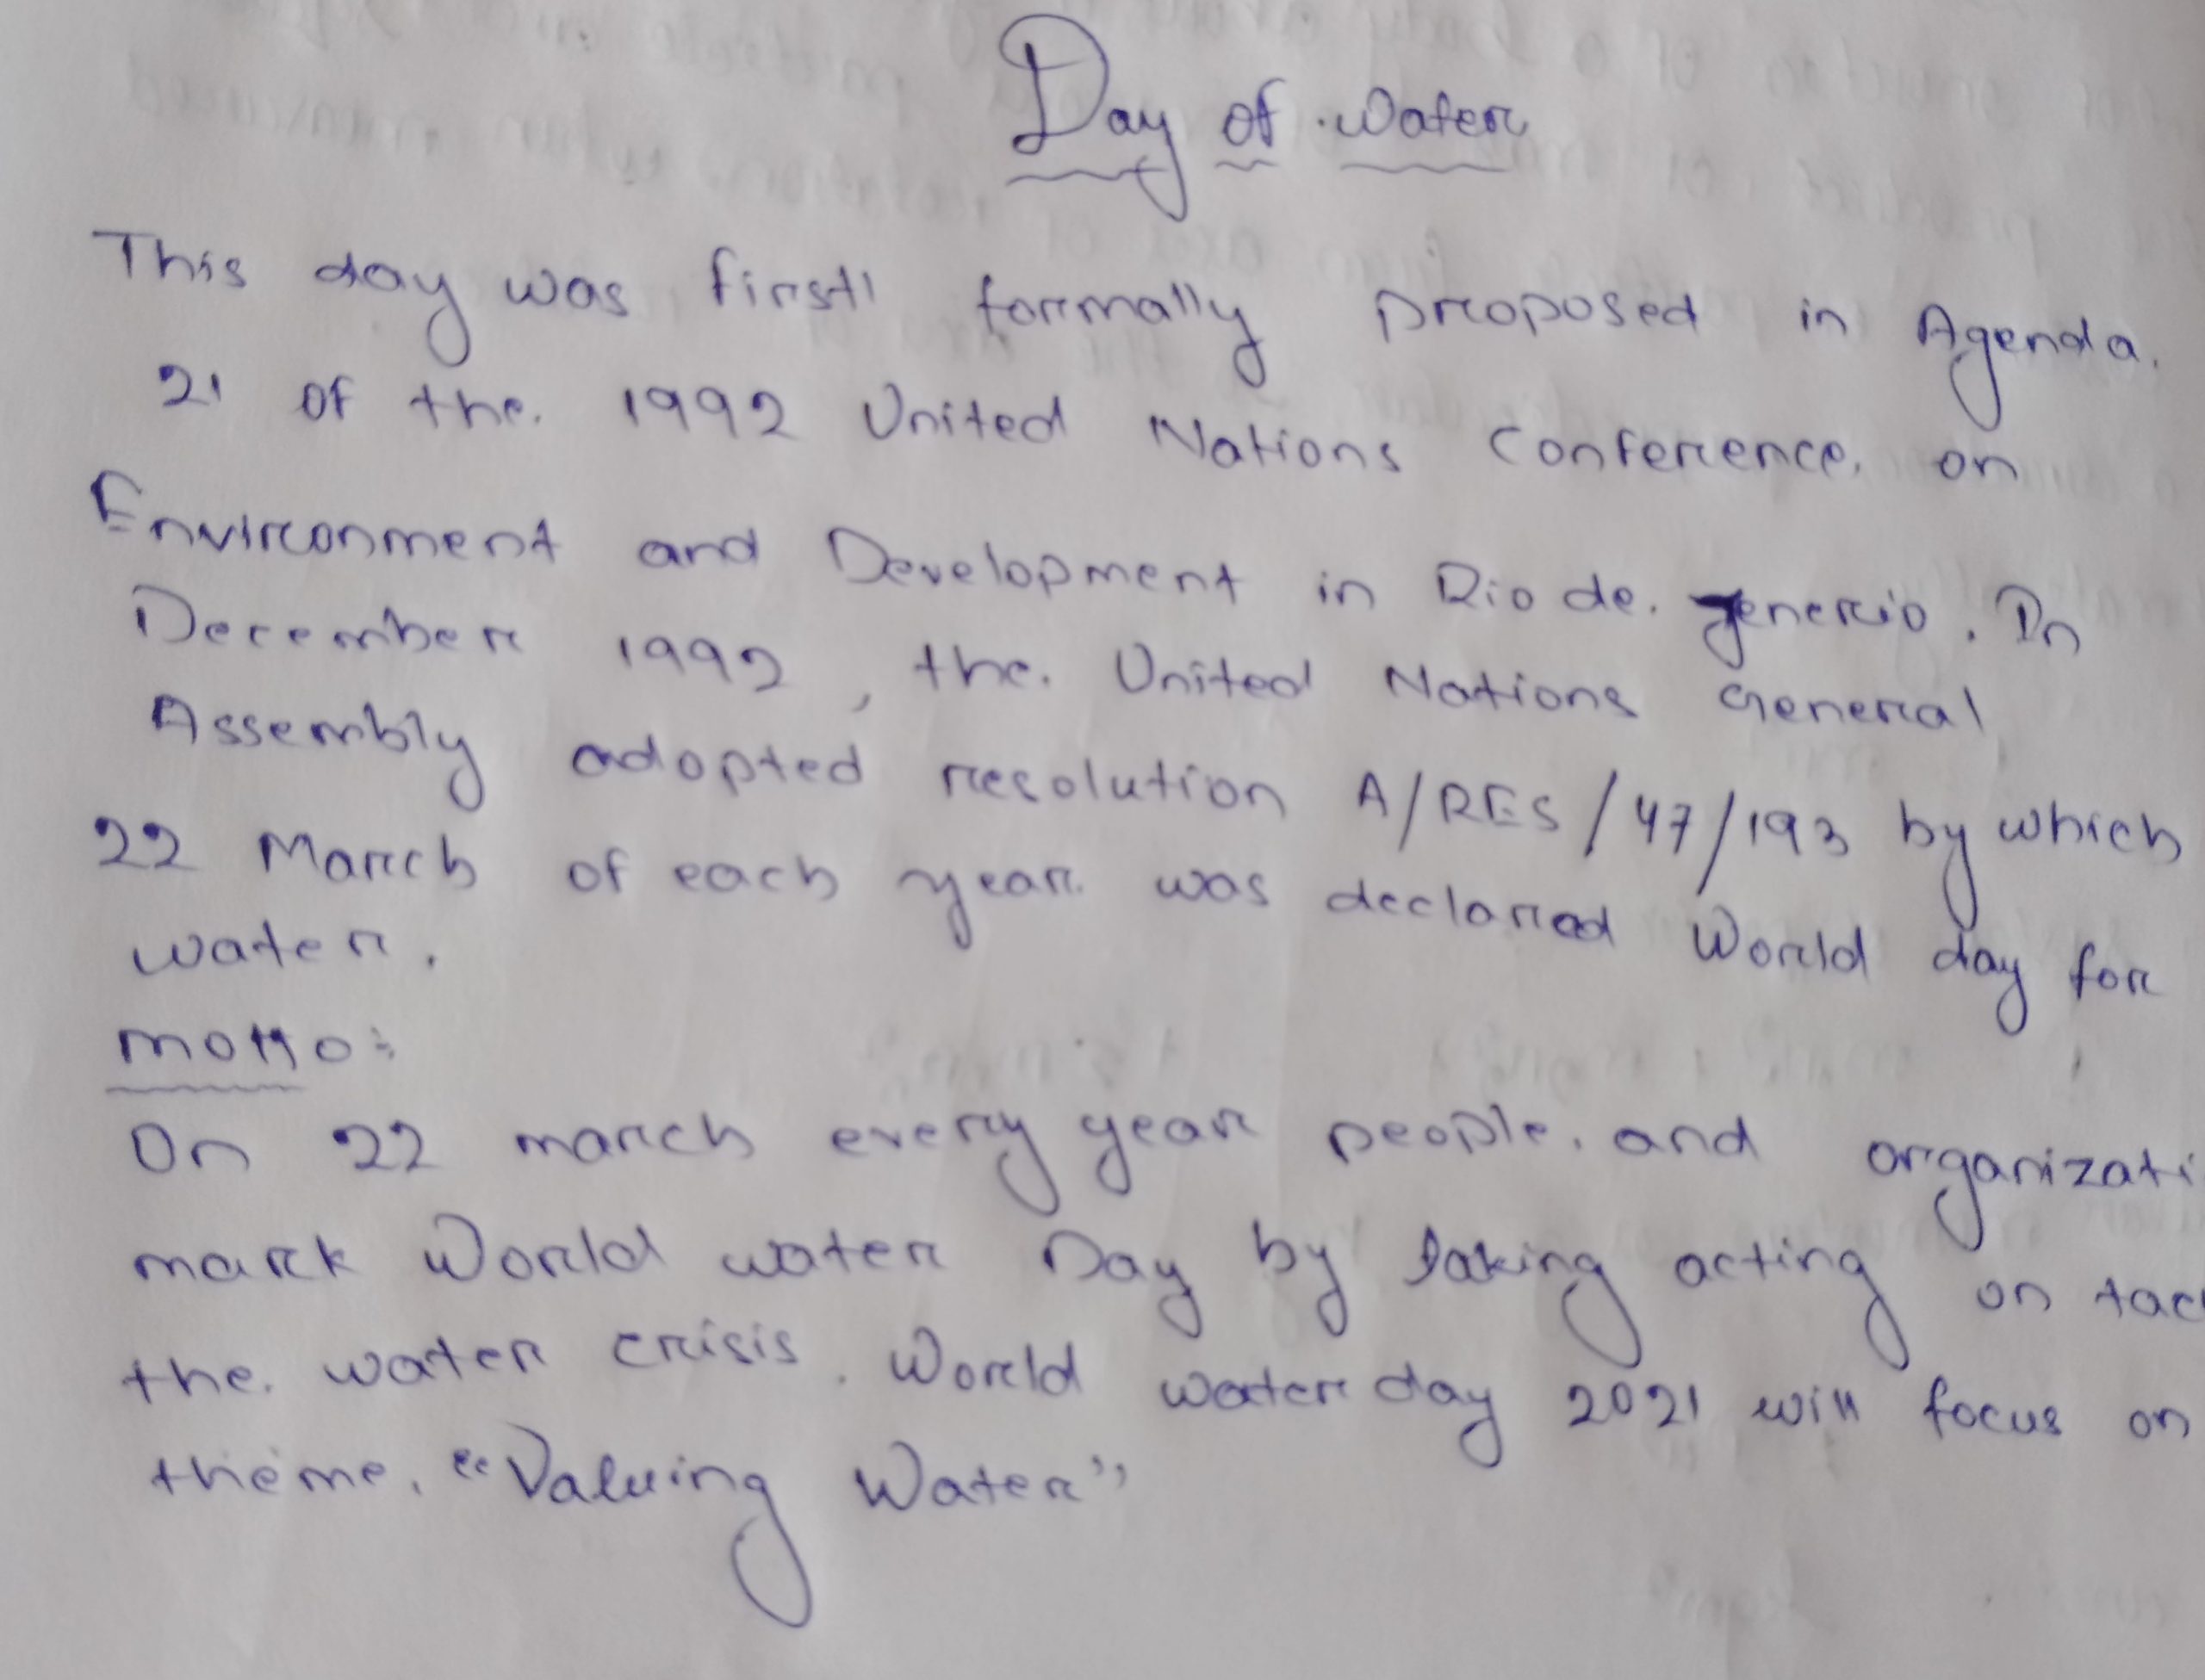 Day of water
This day was first formally proposed in Agenda
21 of the 1992 United Nations Conference on
Environment and Development in Rio de Jenerio. In
December 1992, the United Nations General
Assembly adopted resolution A/RES/47/193 by which
22 March of each year was declared World day for
water.
Motto:
On 22 march every year people and organizati
mark World water Day by taking acting on tac
the water crisis. World water day 2021 will focus on
theme "Valuing Water"